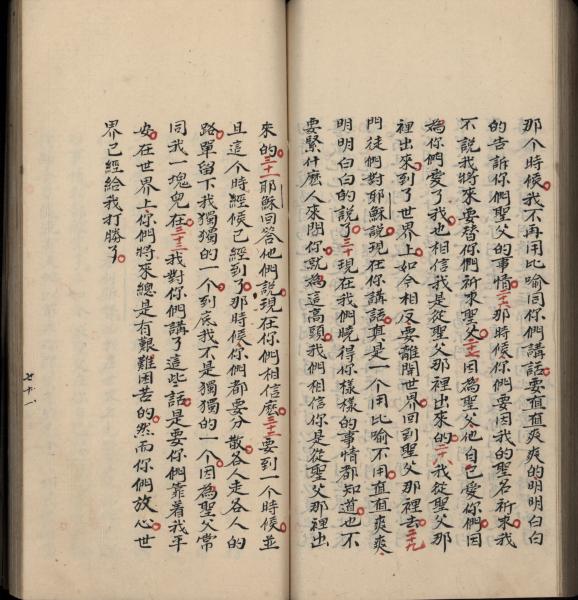 那个時候我不再用比喻同你們講話要直直爽爽的明明白白
的告訴你們聖父的事情二十六那時候你們要因我的聖名祈求我
不說我將來要替你們祈求聖父二十七因為聖父他自己愛你們因
為你們愛了我也相信我是從聖父那裡出來的二十八我從聖父那
裡出來到了世界上如今相反要離開世界回到聖父那裡去二十九
門徒們對耶穌說現在你講話真是一个用比喻不用直直爽爽
明明白白的說了三十現在我們曉得你樣樣的事情都知道也不
要緊什麽人來問你就為這高頭我們相信你是從聖父那裡出
來的三十一耶穌回答他們說現在你們相信麽三十二要到一个時候並
且這个時經候已經到了那時候你們都要分散各人走各人的
路單留下我獨獨的一个到底我不是獨獨的一个因為聖父常
同我一塊兒在三十三我對你們講了這些話是要你們靠着我平
安在世界上你們將來總是有艱難困苦的然而你們放心世
界已經給我打勝了
七十一